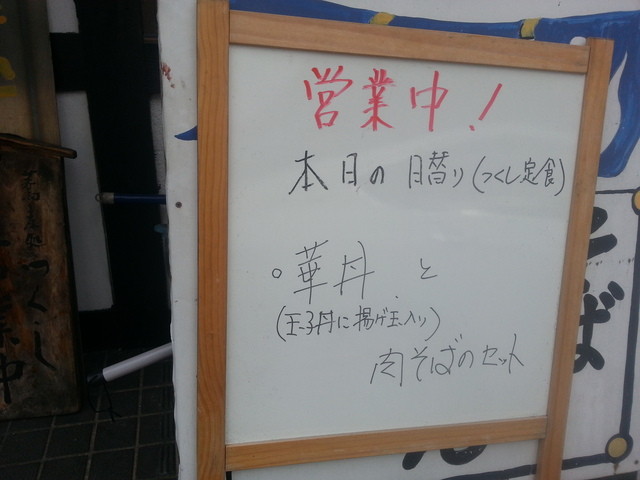 営業中!
本日の日替り(つくし定食)
○華丹.と
(玉子丼に揚げ玉入り)
肉そばのセット
つくし
そば